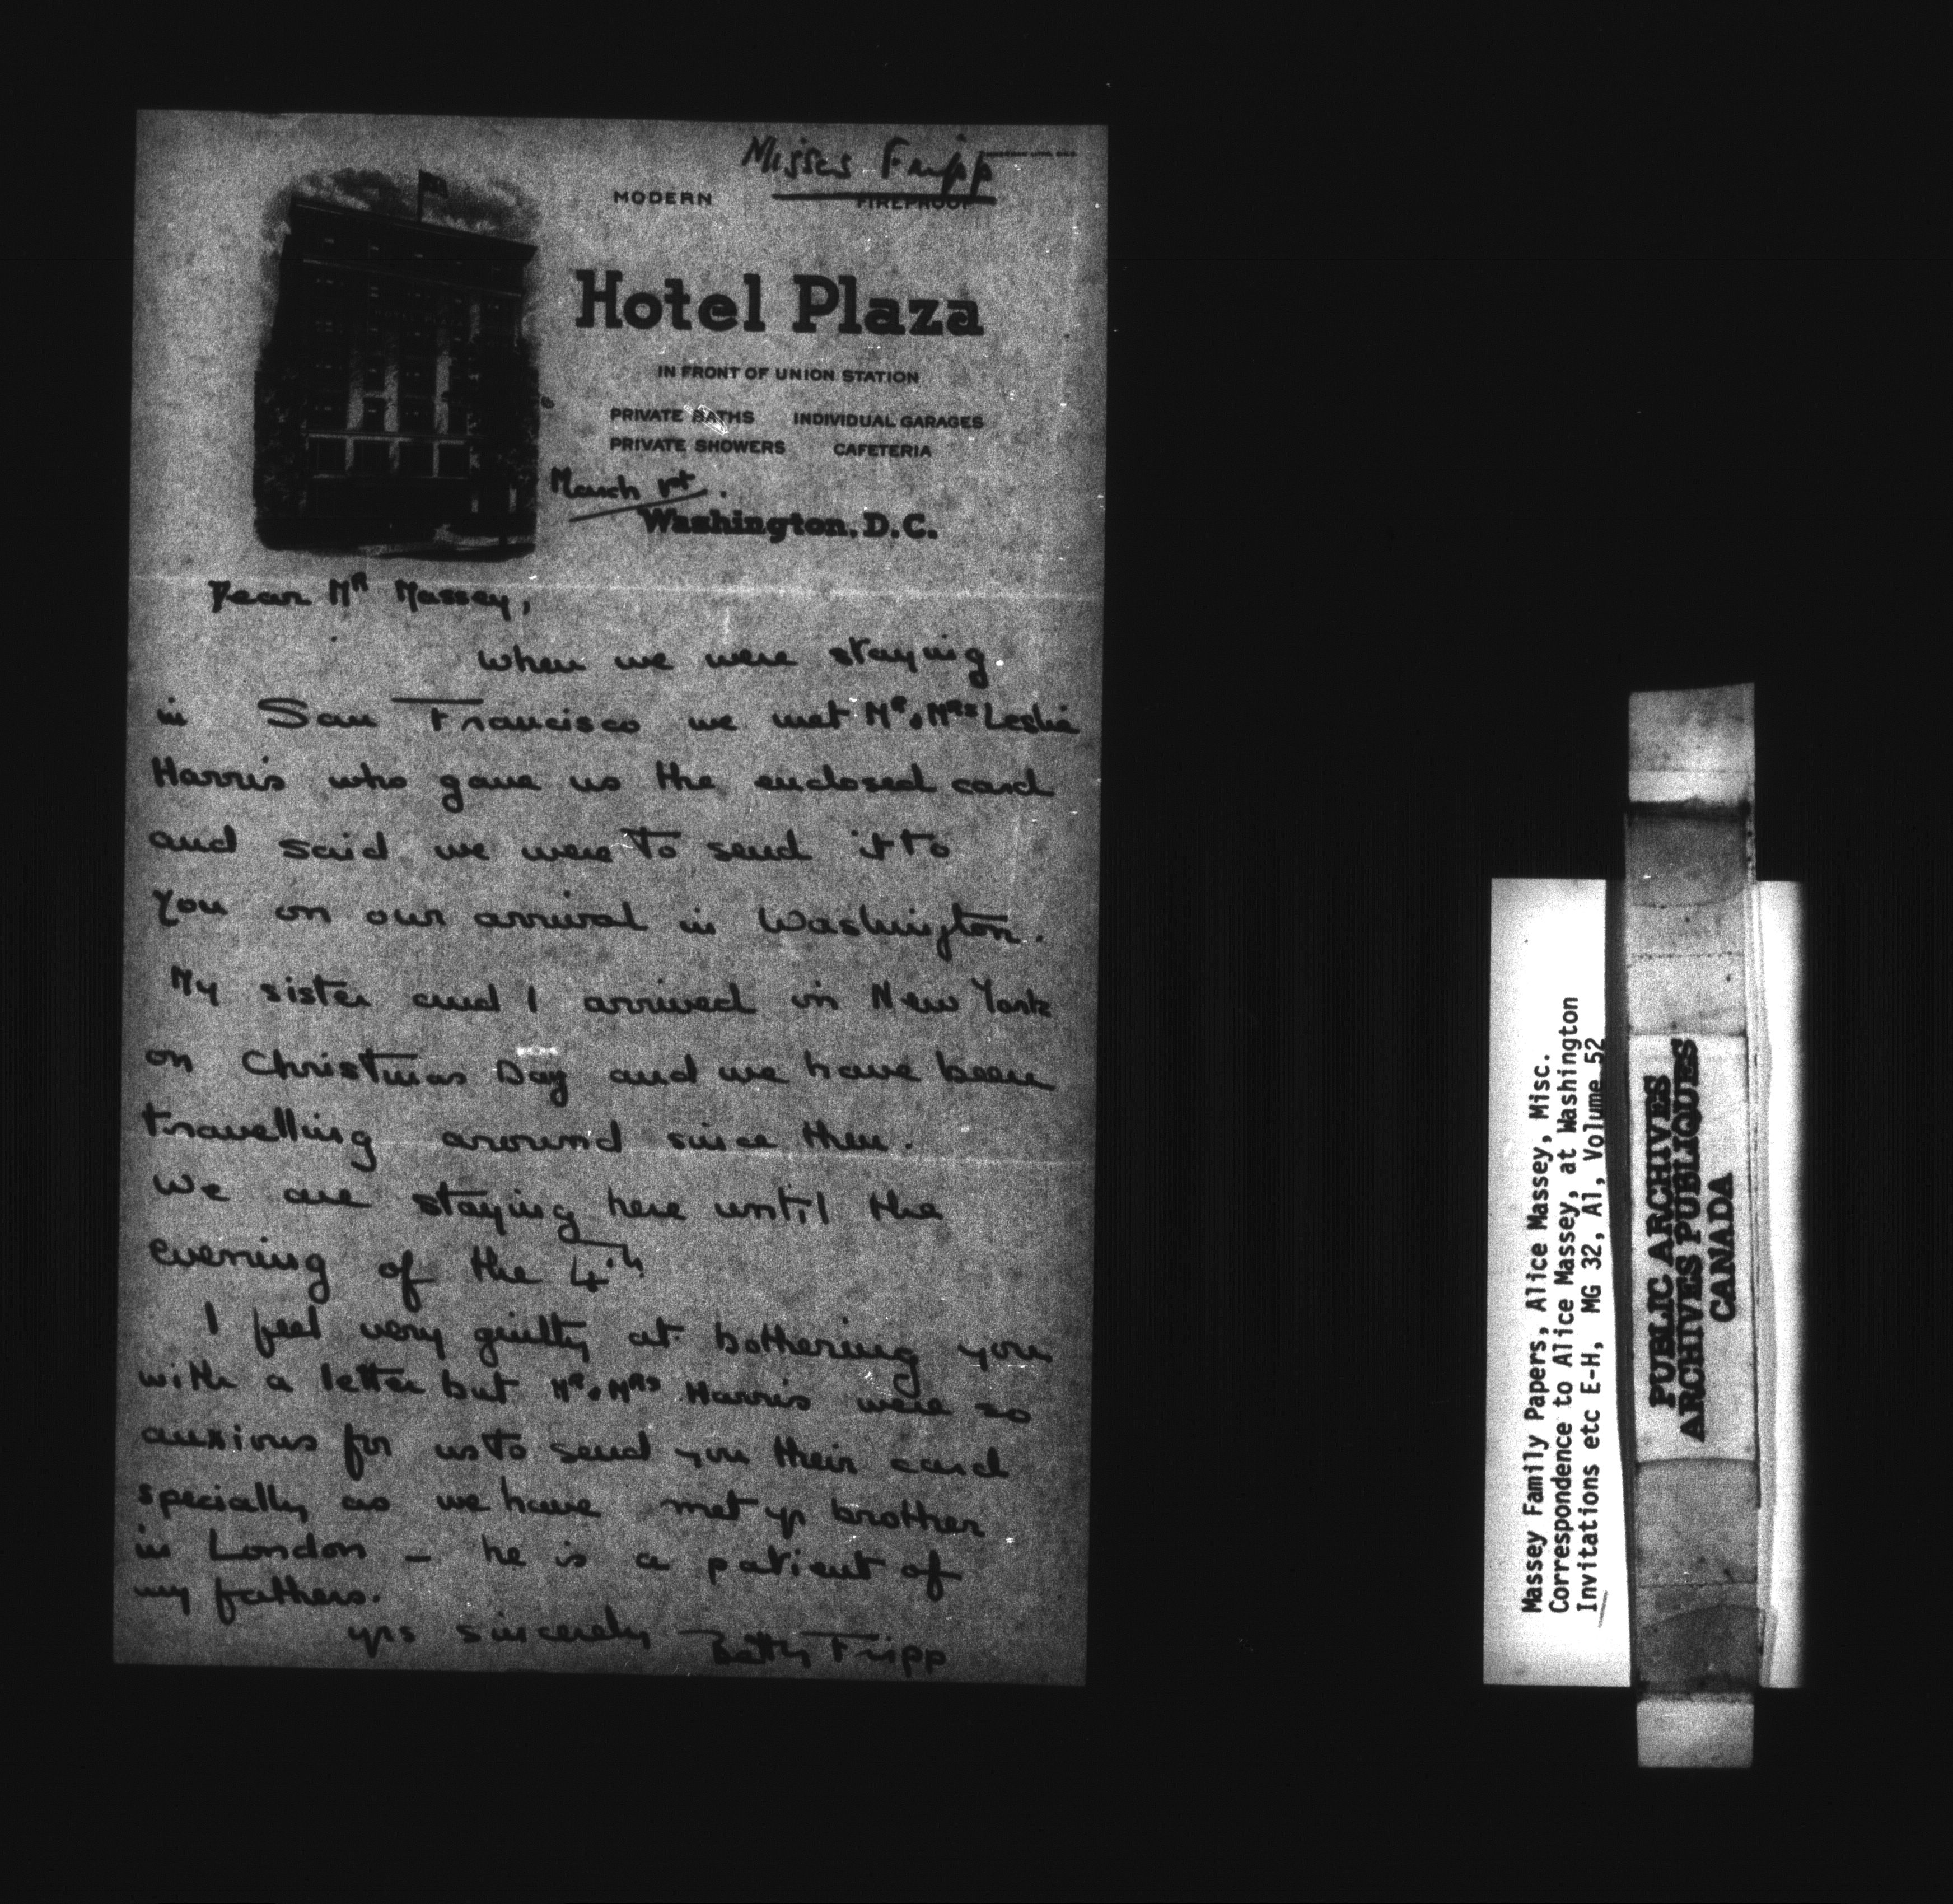 Misses Fripp
MODERN FIREPROOF
Hotel Plaza
IN FRONT OF UNION STATION
PRIVATE BATHS INDIVIDUAL GARAGES
PRIVATE SHOWERS CAFETERIA
March 1st.
Washington, D.C.
Dear Mr Massey,
when we were staying
in San Francisco we met Mr & Mrs Leslie
Harris who gave us the enclosed card
and said we were to send it to
you on our arrival in Washington.
My sister and I arrived in New York
on Christmas Day and we have been
travelling around since then.
We are staying here until the
evening of the 4th
I feel very guilty at bothering you
with a letter but Mr & Mrs Harris were so
anxious for us to send you their card
specially as we have met yr brother
in London - he is a patient of
my fathers.
yrs sincerely Betty Fripp
Massey Family Papers, Alice Massey, Misc.
Correspondence to Alice Massey, at Washington
Invitations etc E-H, MG 32, A1, Volume 52
PUBLIC ARCHIVES
ARCHIVES PUBLIQUES
CANADA